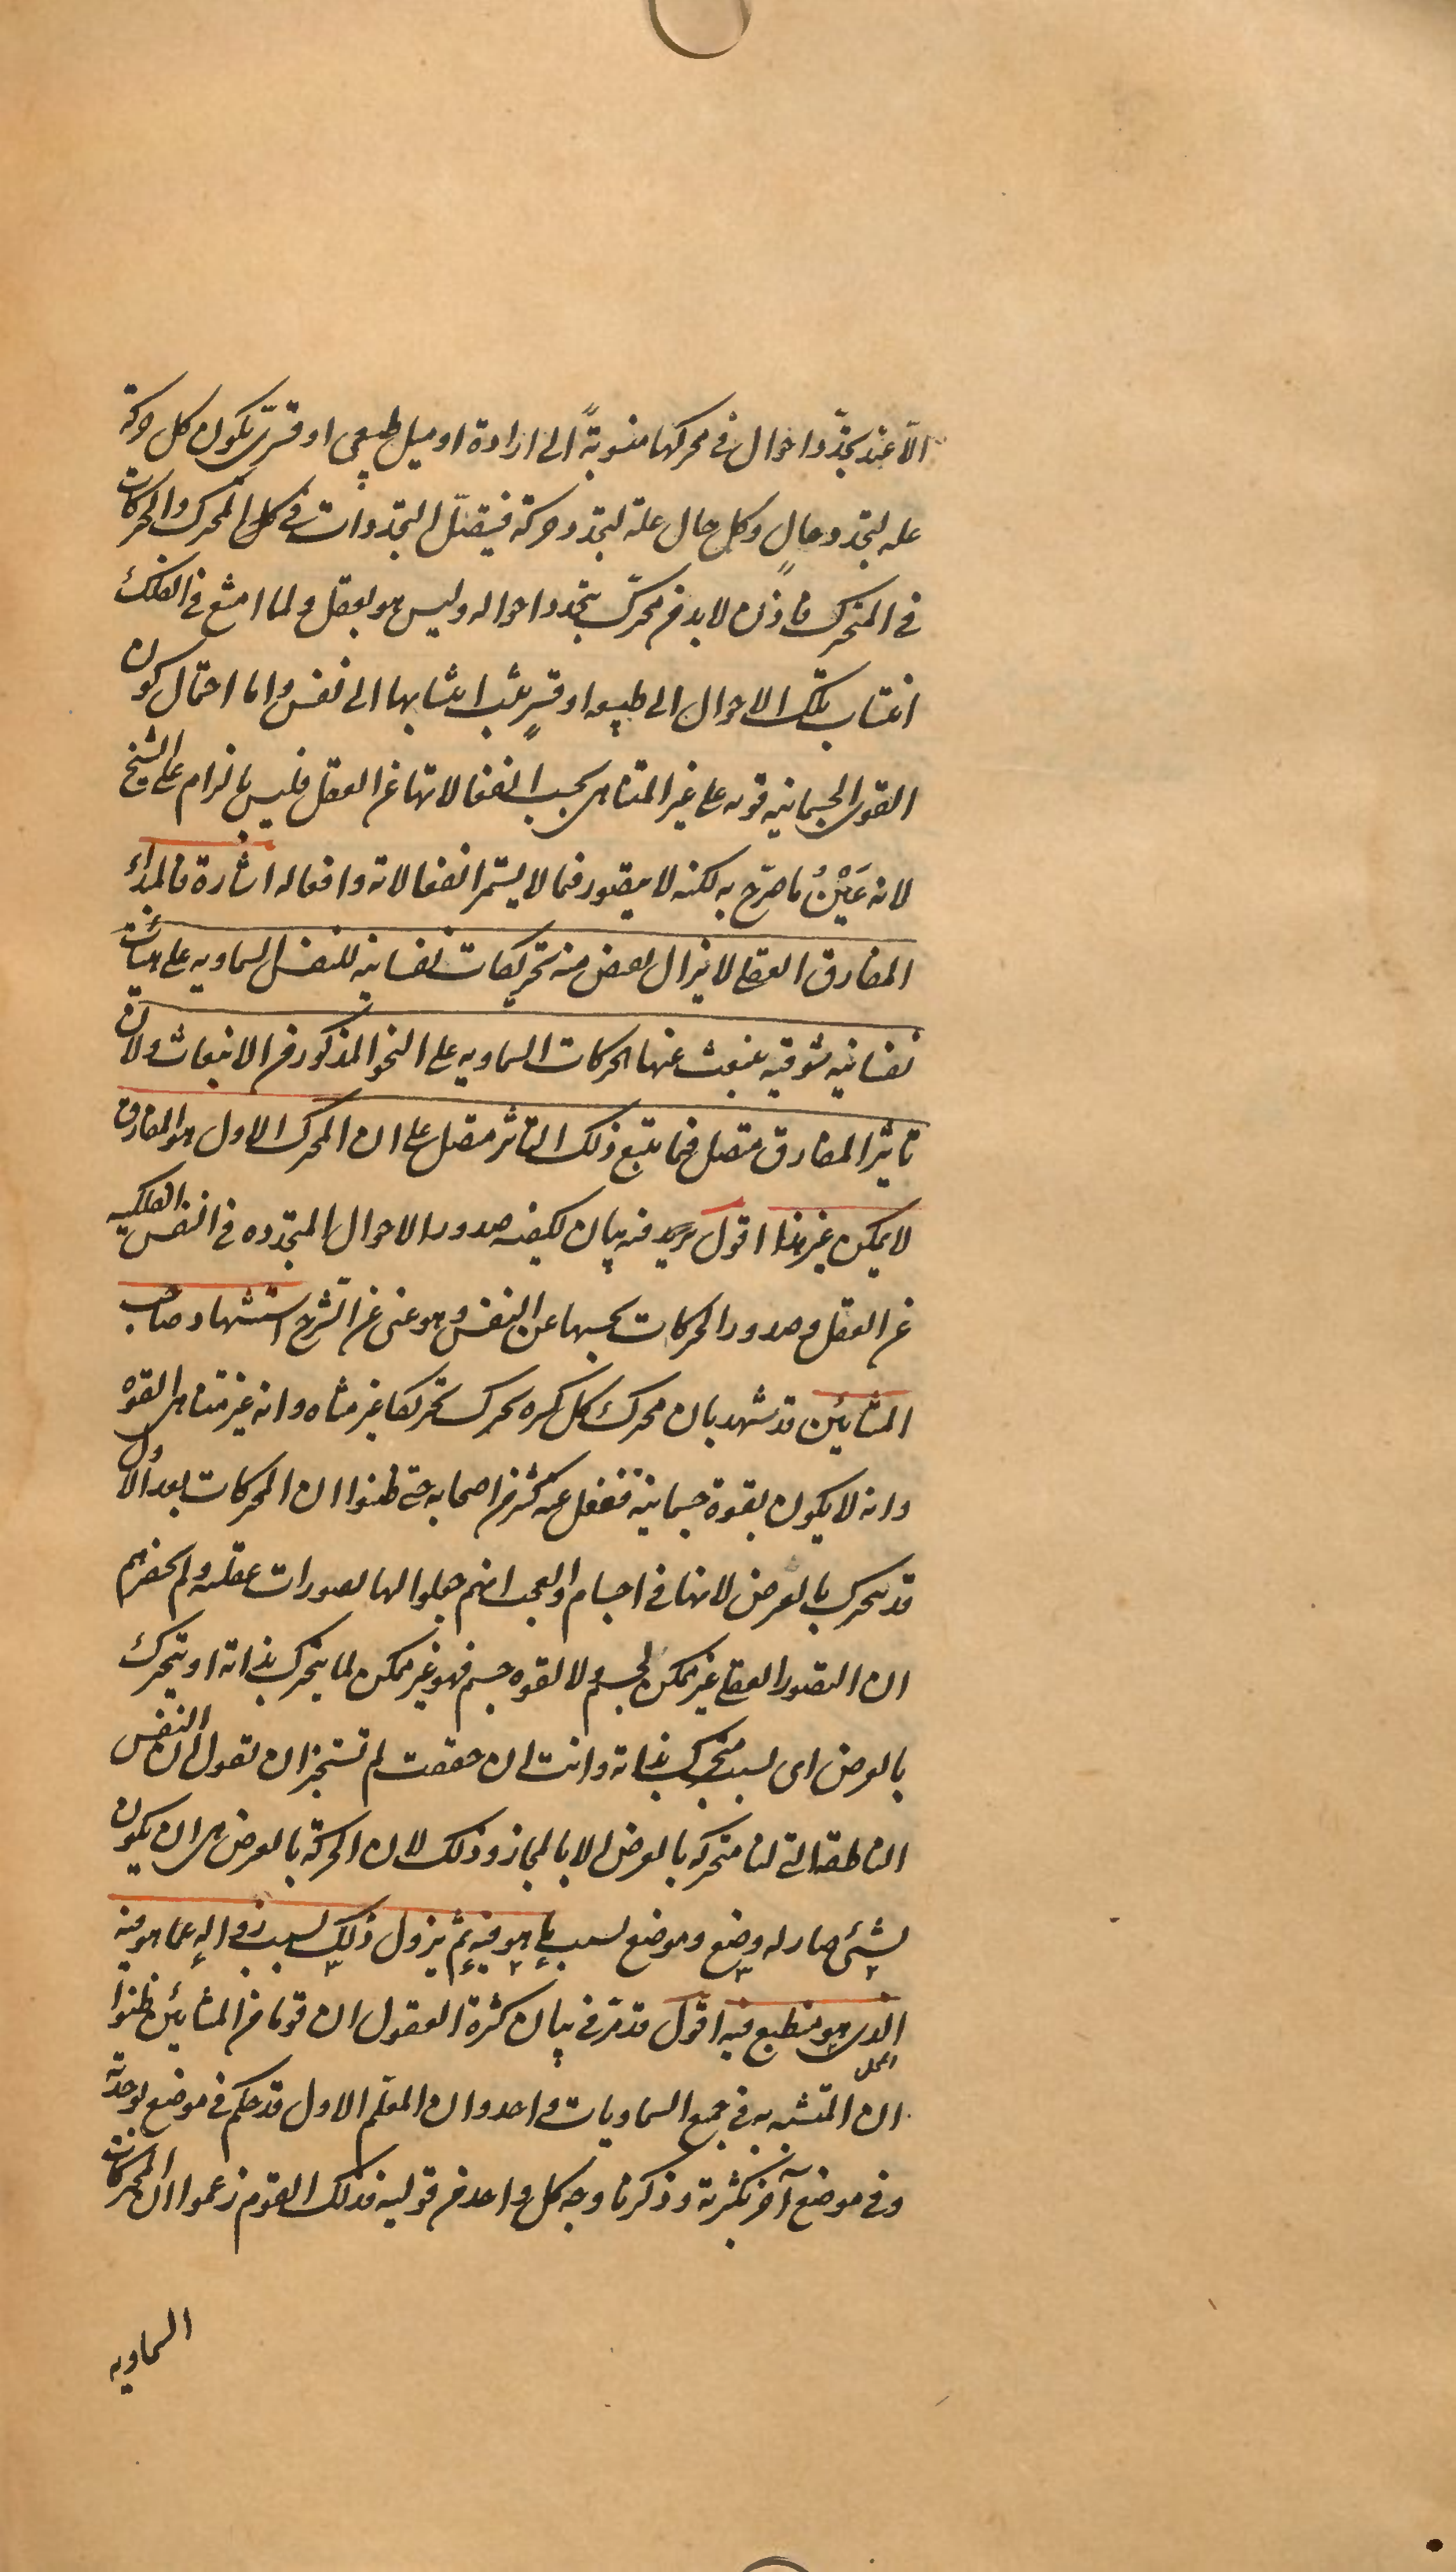 الّا عند تجدّد احوال فى محركها منسوبةً الى ارادة او ميل طبيعى او قسرىّ يكون كل حركة
علة لتجدد حالٍ وكل حال علة لتجدد حركة فيتصل التجددات فى كل المحرك والحركات
فى المتحرك فاذن لا بد من محرك يتجدد احواله وليس هو بعقل ولما امتنع فى الفلك
انتساب تلك الاحوال الى طبيعة او قسرٍ ثبت انتسابها الى نفس واما احتمال كون
القوى الجسمانية قوية على غير المتناهى بحسب انفعالاتها عن العقل فليس بالزام على الشيخ
لانه عَيْنُ ما صرّح به لكنه لا يتصور فيما لا يستمر انفعالاته وافعاله اشارة فالمبدأ
المفارق العقلى لا يزال يفيض منه تحريكات نفسانية للنفس السماوية على هيئات
نفسانية شوقية ينبعث عنها الحركات السماوية على النحو المذكور من الانبعاث ولان
تاثير المفارق متصل فما يتبع ذلك التاثير متصل على ان المحرك الاول هو المفارق
لا يمكن غير هذا اقول يريد فيه بيان كيفية صدور الاحوال المتجددة فى النفس الفلكية
عن العقل وصدور الحركات بحسبها عن النفس وهو غنى عن الشرح استشهاد صاحب
المشائين قد شهد بان محرك كل كرة يحرك تحريكا غير متناه وانه غير متناهى القوة
وانه لا يكون بقوة جسمانية فغفل عنه كثير من اصحابه حتى ظنوا ان المحركات بعد الاول
قد تتحرك بالعرض لانها فى اجسام والعجب انهم جعلوا لها تصورات عقلية ولم يحضرهم
ان التصور العقلى غير ممكن لجسم ولا لقوة جسم فهو غير ممكن لما يتحرك بذاته او يتحرك
بالعرض اى بسبب متحرك بذاته وانت ان حققت لم تستجز ان تقول ان النفس
الناطقة التى لنا متحركة بالعرض الا بالمجاز وذلك لان الحركة بالعرض هى ان يكون
لشئ صار له وضع وموضع بسبب ما هو فيه ثم يزول ذلك بسبب زواله عما هو فيه
الذى هو منطبع فيه اقول قد مرّ فى بيان كثرة العقول ان قوما من المشائين ظنوا
ان المتشبه به فى جميع السماويات واحد وان المعلّم الاول قد حكم فى موضع بوحدته
وفى موضع آخر بكثرته وذكرنا وجه كل واحد من قوليه فذلك القوم زعموا ان المحركات
السماوية